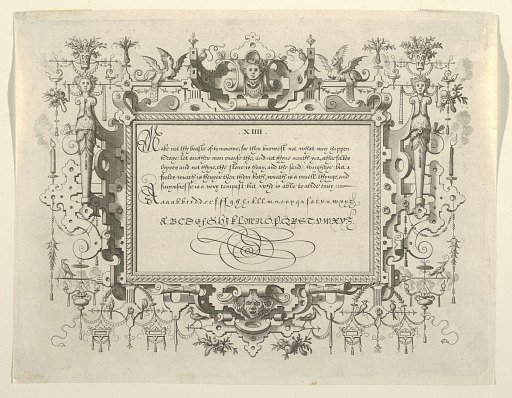 XIIII.
Make not thy boaste of to morowe, for thou knowest not what may happen
to daye. Let another man praise the, and not thine mouth, yea, other folkes
lippes, and not thine. the stone is heavy, and the sand weightye: but a
fooles wrath is heavyer then them both. wrath is a cruell thinge, and
furiousnesse is a very tempest: but who is able to abide envy.
A a a a b b c d d e e f f f g g h i k l l m n o p p q r s s t v u w x y z
A B C D E F G H I K L M N O P Q R S T V W X Y Z